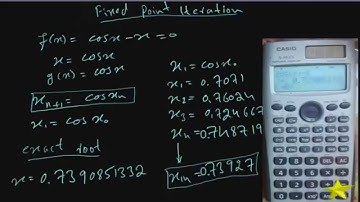 Fixed Point Iteration
f(x) = cosx-x=0
x = cosx
g(x) = cosx
x_{n+1} = cosx_n
x_1 = cosx_0
exact root
x = 0.7390851332
x_1 = cosx_0
x_1 = 0.7071
x_2 = 0.76024
x_3 = 0.724667
x_4 = 0.748719
x_14 = 0.73927
CASIO